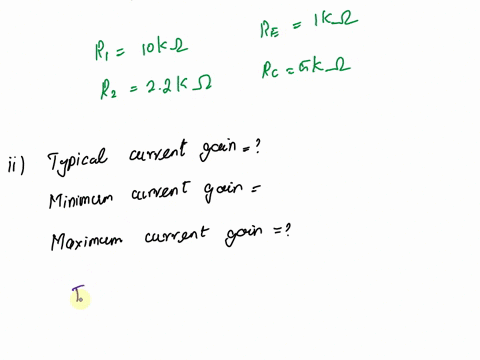 R1 = 10kΩ
RE = 1kΩ
R2 = 2.2kΩ
RC = 5kΩ
ii) Typical current gain = ?
Minimum current gain =
Maximum current gain = ?
T.